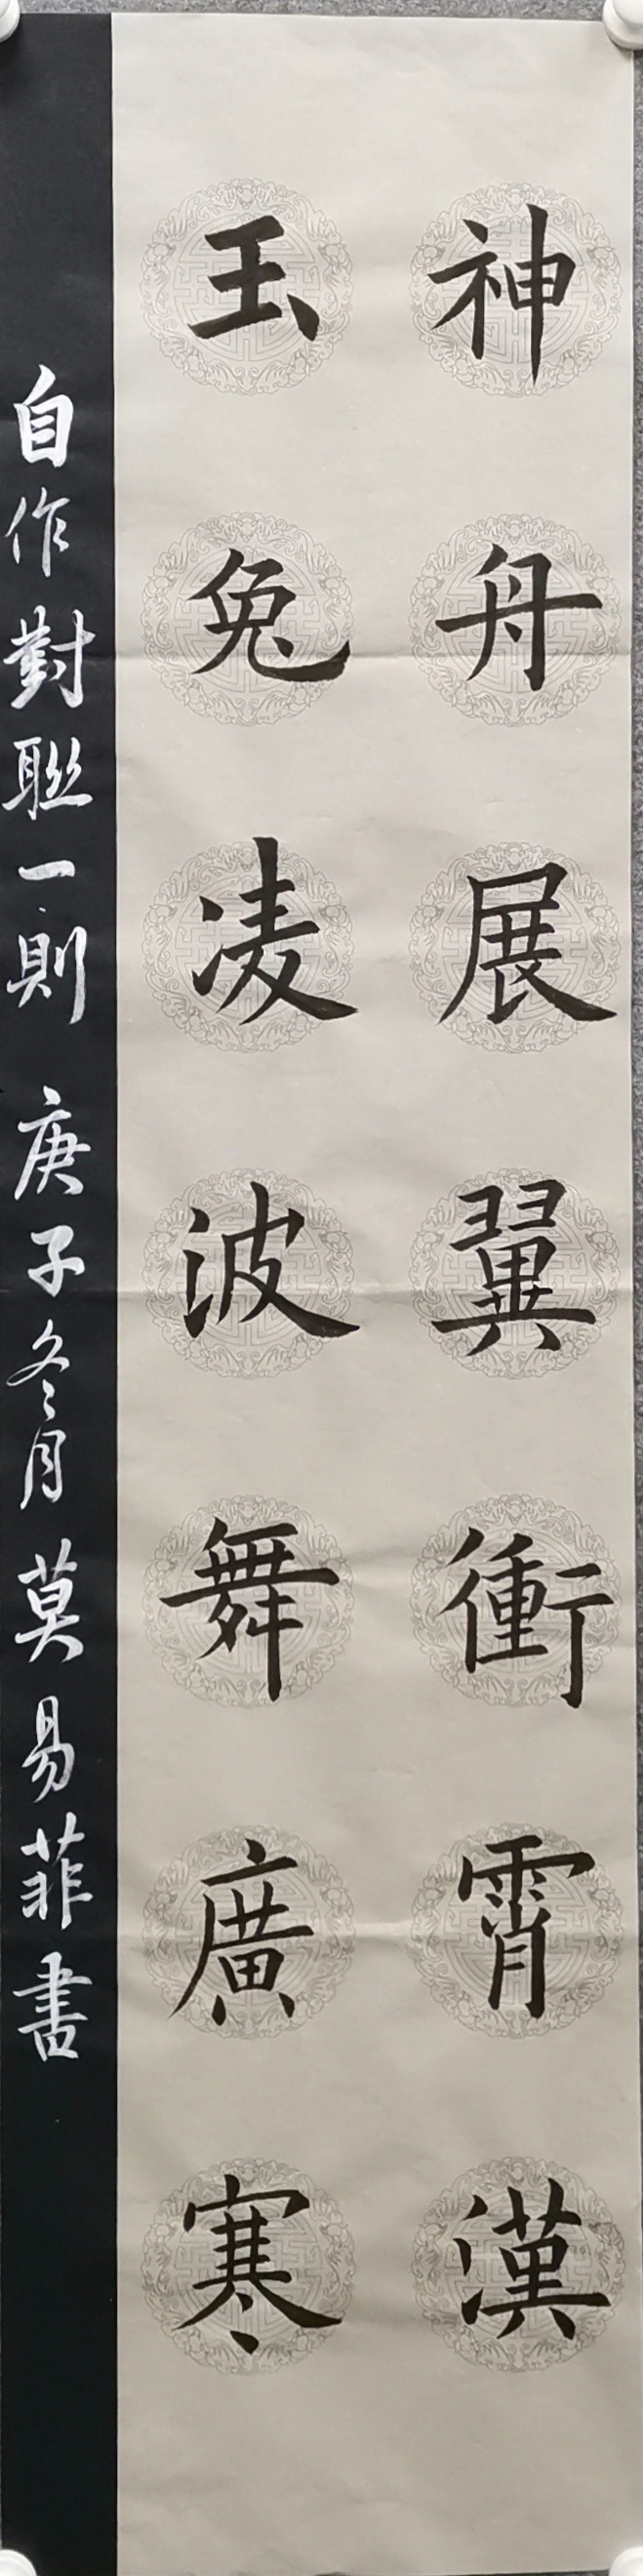 神舟展翼衝霄漢
玉兔凌波舞廣寒
自作對聯一則 庚子冬月莫易菲書